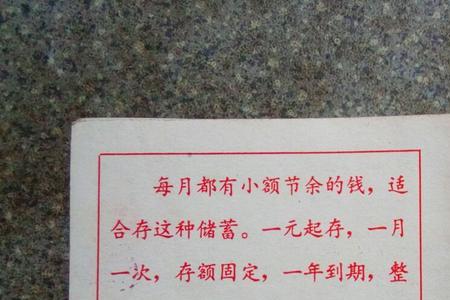 每月都有小额节余的钱，适
合存这种储蓄。一元起存，一月
一次，存额固定，一年到期，整